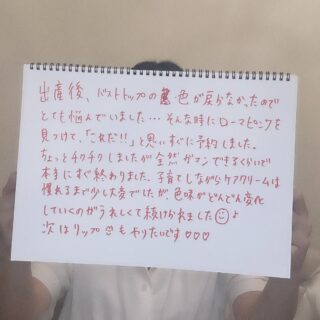 出産後、バストトップの色が戻らなかったので
とても悩んでいました…そんな時にローマピンクを
見つけて、「これだ!!」と思いすぐに予約しました。
ちょっとチクチクしましたが全然ガマンできるくらいで
本当にすぐ終わりました。子育てしながらケアクリームは
慣れるまで少し大変でしたが、色味がどんどん変化
していくのがうれしくて続けられました☺♪
次はリップ☺もやりたいです♡♡♡